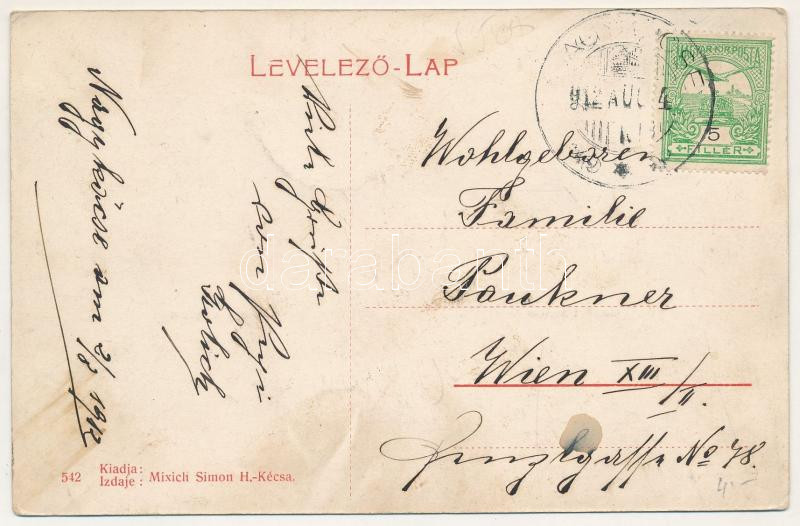 LEVELEZŐ-LAP
912 AUG 4
MAGYAR KIR. POSTA
5
FILLÉR
Nagykőcse am 2/8 1912
Viele Grüsse
von
Wohlgeboren
Familie
Paukner
Wien XIII/II.
No 78.
darabanth
542 Kiadja:
Izdaje: Mixich Simon H.-Kécsa.